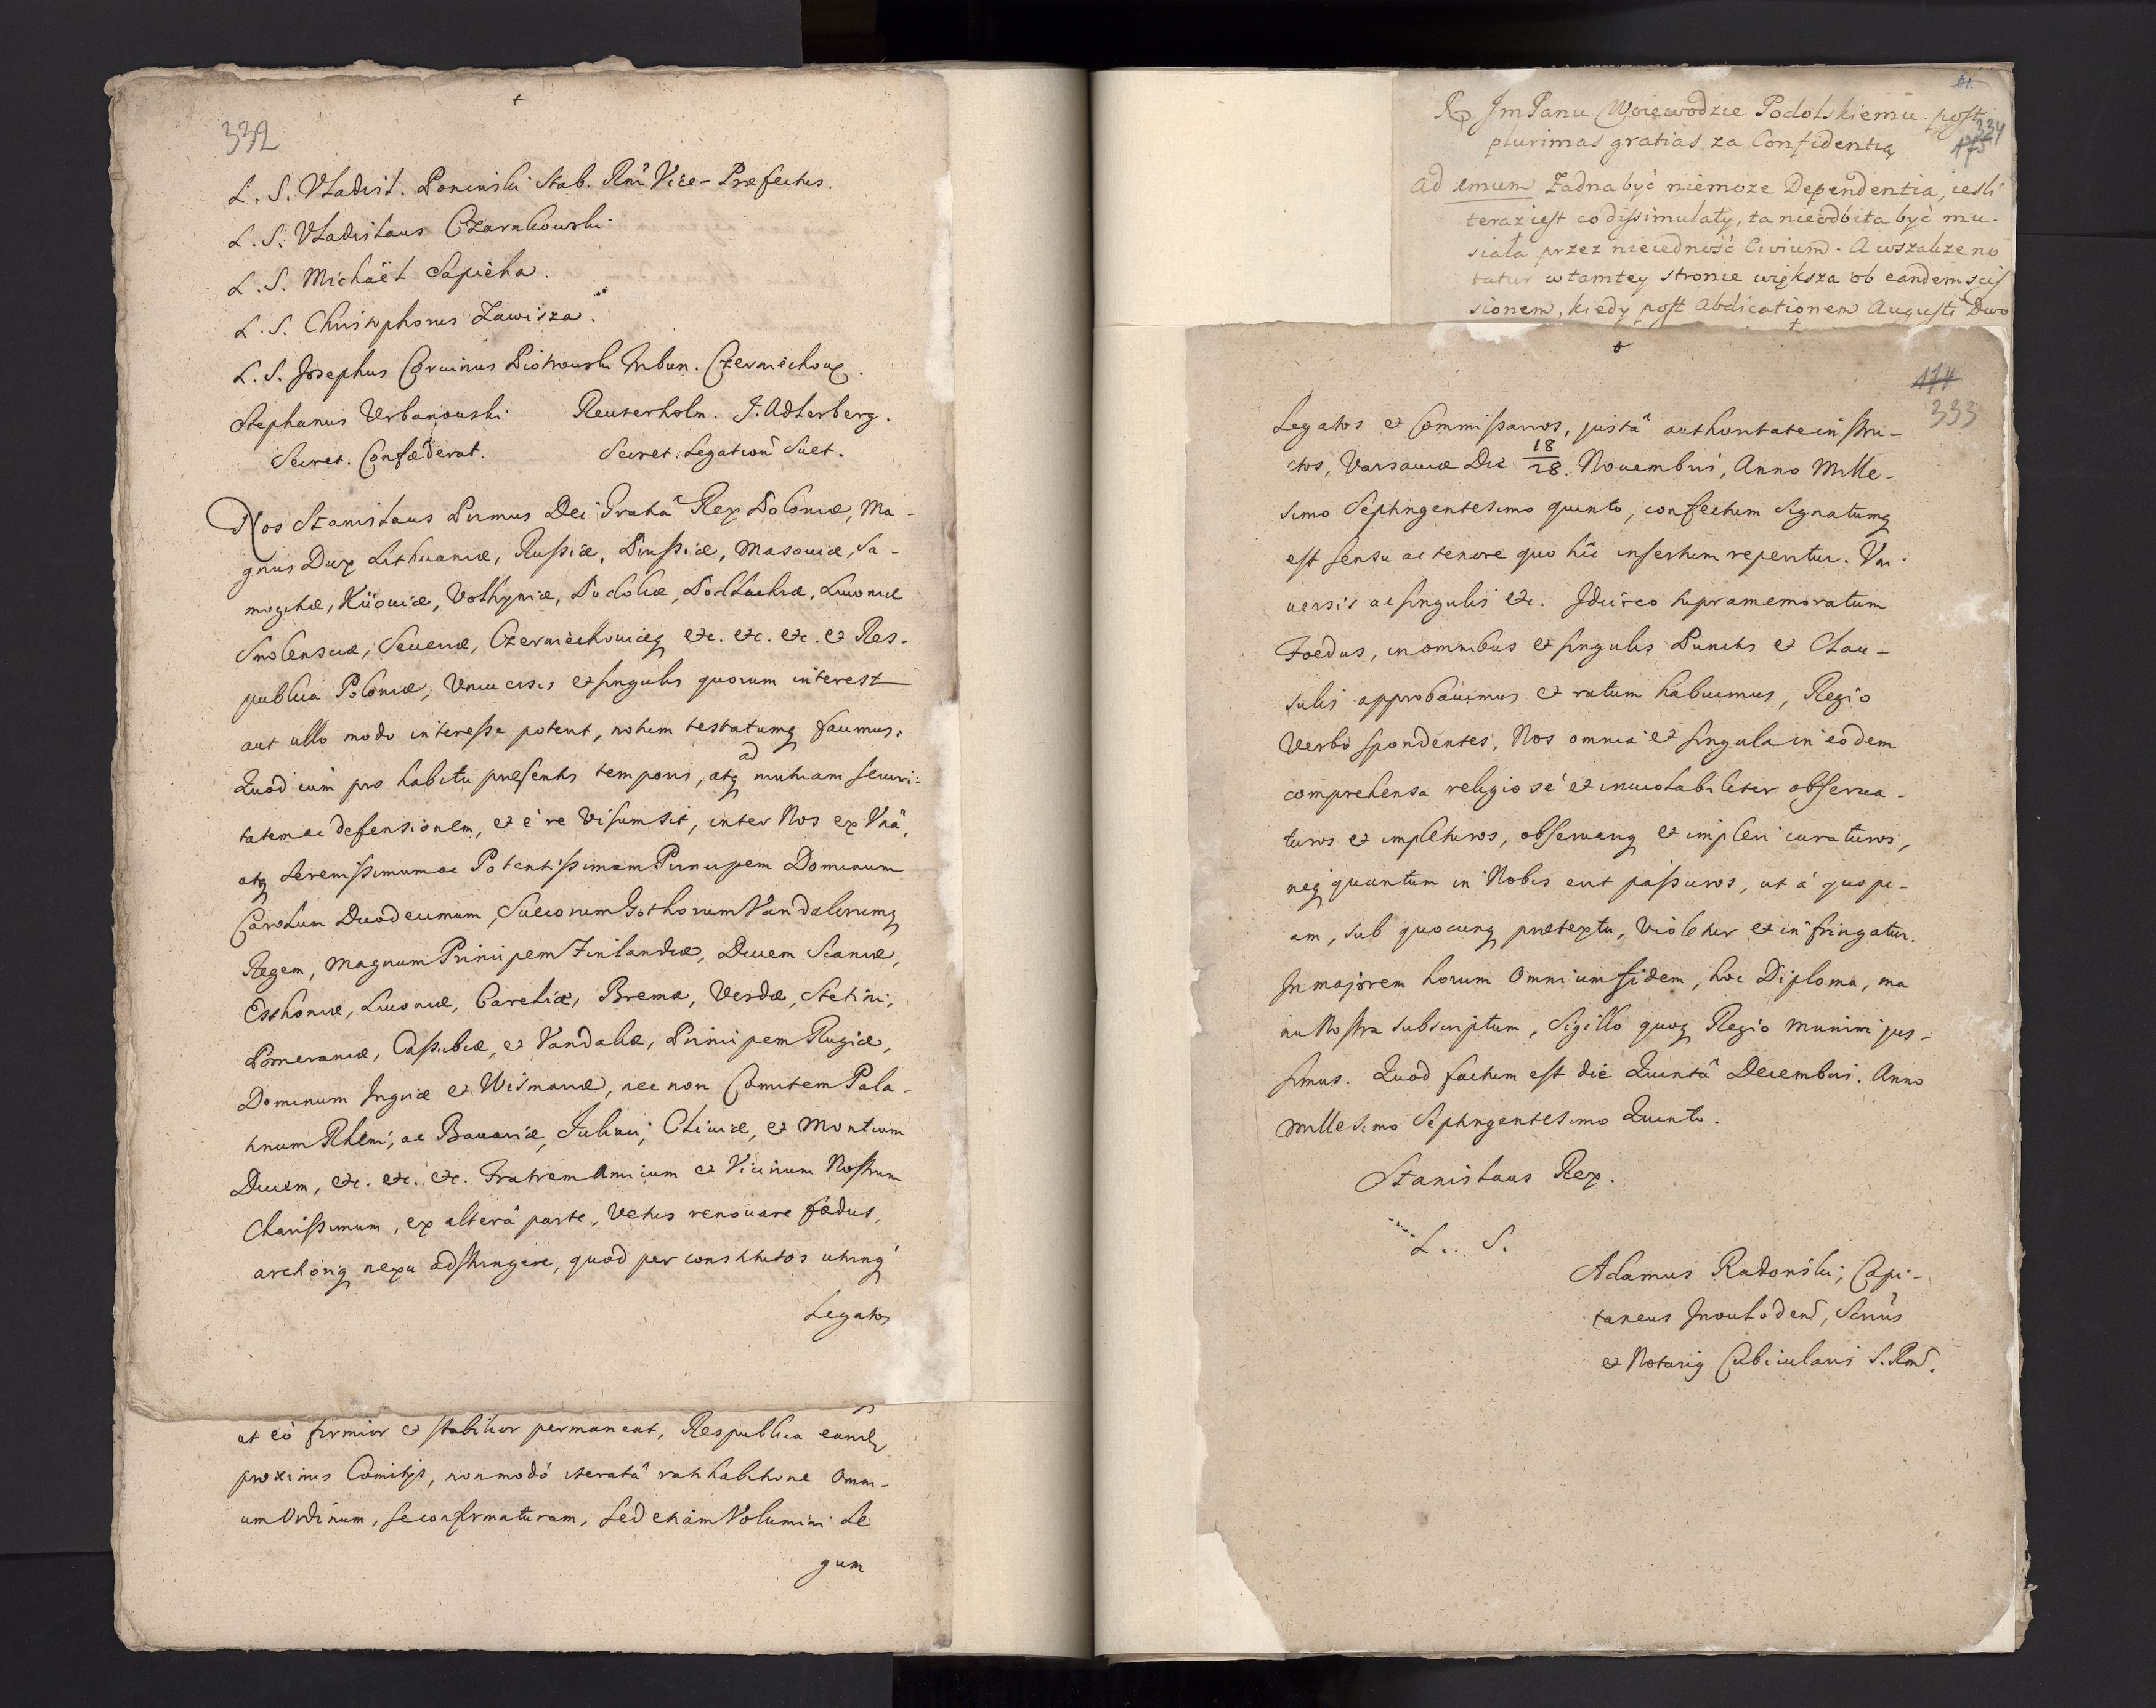 332
L. S. Vladisl. Poninski Stab. Rni Vice-Præfectus.
L. S. Vladislaus Czarnkowski
L. S. Michaël Sapieha.
L. S. Christophorus Zawisza.
L. S. Josephus Corvinus Piotrowski Tribun. Czerniechov.
Stephanus Urbanowski. Reuterholm. J. Adlerberg.
Secret. Confœderat. Secret. Legation Suet.
Nos Stanislaus Primus Dei Gratiâ Rex Poloniæ, Ma-
gnus Dux Lithuaniæ, Russiæ, Prussiæ, Masoviæ, Sa-
mogitiæ, Kiioviæ, Volhyniæ, Podoliæ, Podlachiæ, Livoniæ
Smolensciæ, Severiæ, Czerniechoviæq etc. etc. etc. et Res-
publica Poloniæ; Universis et singulis quorum interest
aut ullo modo interesse poterit, notum testatumq facimus.
Quod cum pro habitu præsentis temporis, atq ad mutuam securi-
tatem ac defensionem, et é re visum sit, inter Nos ex Vnâ,
atq Serenissimum ac Potentissimum Principem Dominum
Carolum Duodecimum, Suecorum Gothorum Vandalorumq
Regem, Magnum Principem Finlandiæ, Ducem Scaniæ,
Esthoniæ, Livoniæ, Careliæ, Bremæ, Verdæ, Stetini,
Pomeraniæ, Cassubiæ, et Vandaliæ, Principem Rugiæ,
Dominum Ingriæ et Wismariæ, nec non Comitem Pala-
tinum Rheni, ac Bavariæ, Juliaci, Cliviæ, et Montium
Ducem, etc. etc. etc. Fratrem Amicum et Vicinum Nostrum
Charissimum, ex alterâ parte, Vetus renovare fœdus,
arctiorig nexu adstringere, quod per constitutos utrinq
Legatos
ut eò firmior et stabilior permaneat, Respublica eamq
proximis Comitijs, non modó iteratâ ratihabitione Omni-
um Ordinum, se confirmaturam, sed etiam Volumini Le
gum
R Jm Panu Woiewodzie Podolskiemu post
plurimas gratias za Confidentią
334
175
ad 1mum Zadna być niemoze Dependentia, iesli
teraz iest co dissimulaty, ta nieodbita być mu-
siała przez niejedność Civium. A wszakże no
tatur w tamtey stronie większa ob eandem scis
sionem, kiedy post Abdicationem Augusti Dwo
174
333
Legatos et Commissarios, justâ authoritate instru-
ctos, Varsaviæ Die 18/28. Novembris, Anno Mille-
simo Septingentesimo quinto, confectum signatumq
est sensu ac tenore quo hic insertum reperitur. Vni-
versis ac singulis etc. Idcirco supramemoratum
Foedus, in omnibus et singulis Punctis et Clau-
sulis approbavimus et ratum habuimus, Regio
Verbo spondentes, Nos omnia et singula in eodem
comprehensa religiosé et inviolabiliter observa-
turos et impleturos, observariq et impleri curaturos,
neq quantum in Nobis erit passuros, ut á quopi-
am, sub quocunq prætextu, Violetur et infringatur.
In majorem horum Omnium fidem, hoc Diploma, ma
nu Nostra subscriptum, Sigillo quoq Regio muniri jus-
simus. Quod factum est die Quintâ Decembris. Anno
Millesimo Septingentesimo Quinto.
Stanislaus Rex.
L. S.
Adamus Radonski, Capi-
taneus Inowlodens, Scrius
et Notariq Cubicularis S. Rms.